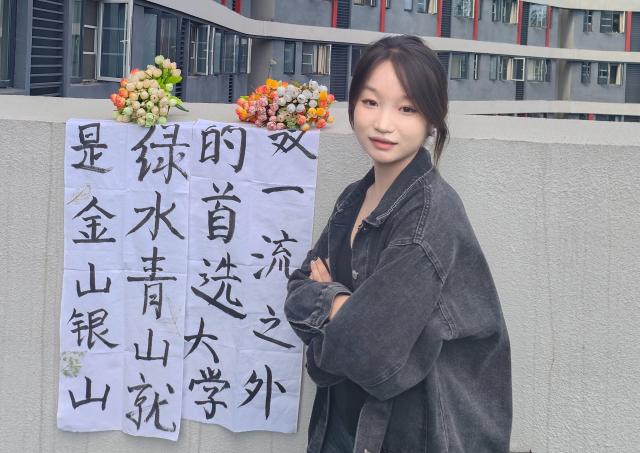 双一流之外
的首选大学
绿水青山就
是金山银山